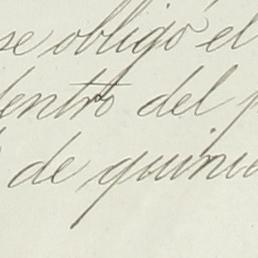 se obligó el
dentro del
de quinie